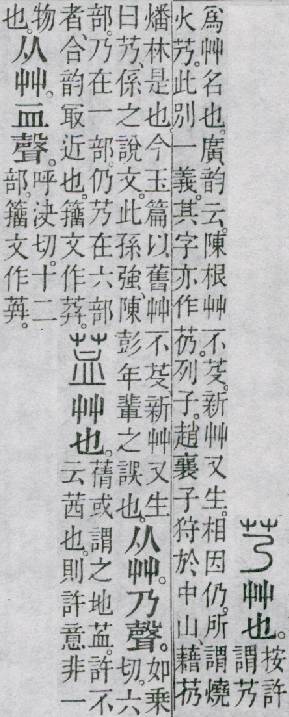 艸也。按許
謂艿
爲艸名也。廣韵云。陳根艸不芟。新艸又生。相因仍。所謂燒
火艿。此別一義。其字亦作芿。列子。趙襄子狩於中山。藉芿
燔林是也。今玉篇以舊艸不芟新艸又生
曰艿。係之說文。此孫強、陳彭年輩之誤也。
从艸。乃聲。如乘
切。六
部。乃在一部。仍艿在六部
者、合韵冣近也。籒文作
艸也。蒨或謂之地。許不
云茜也。則許意非一
物
也。
从艸。血聲。呼決切。十二
部。籒文作